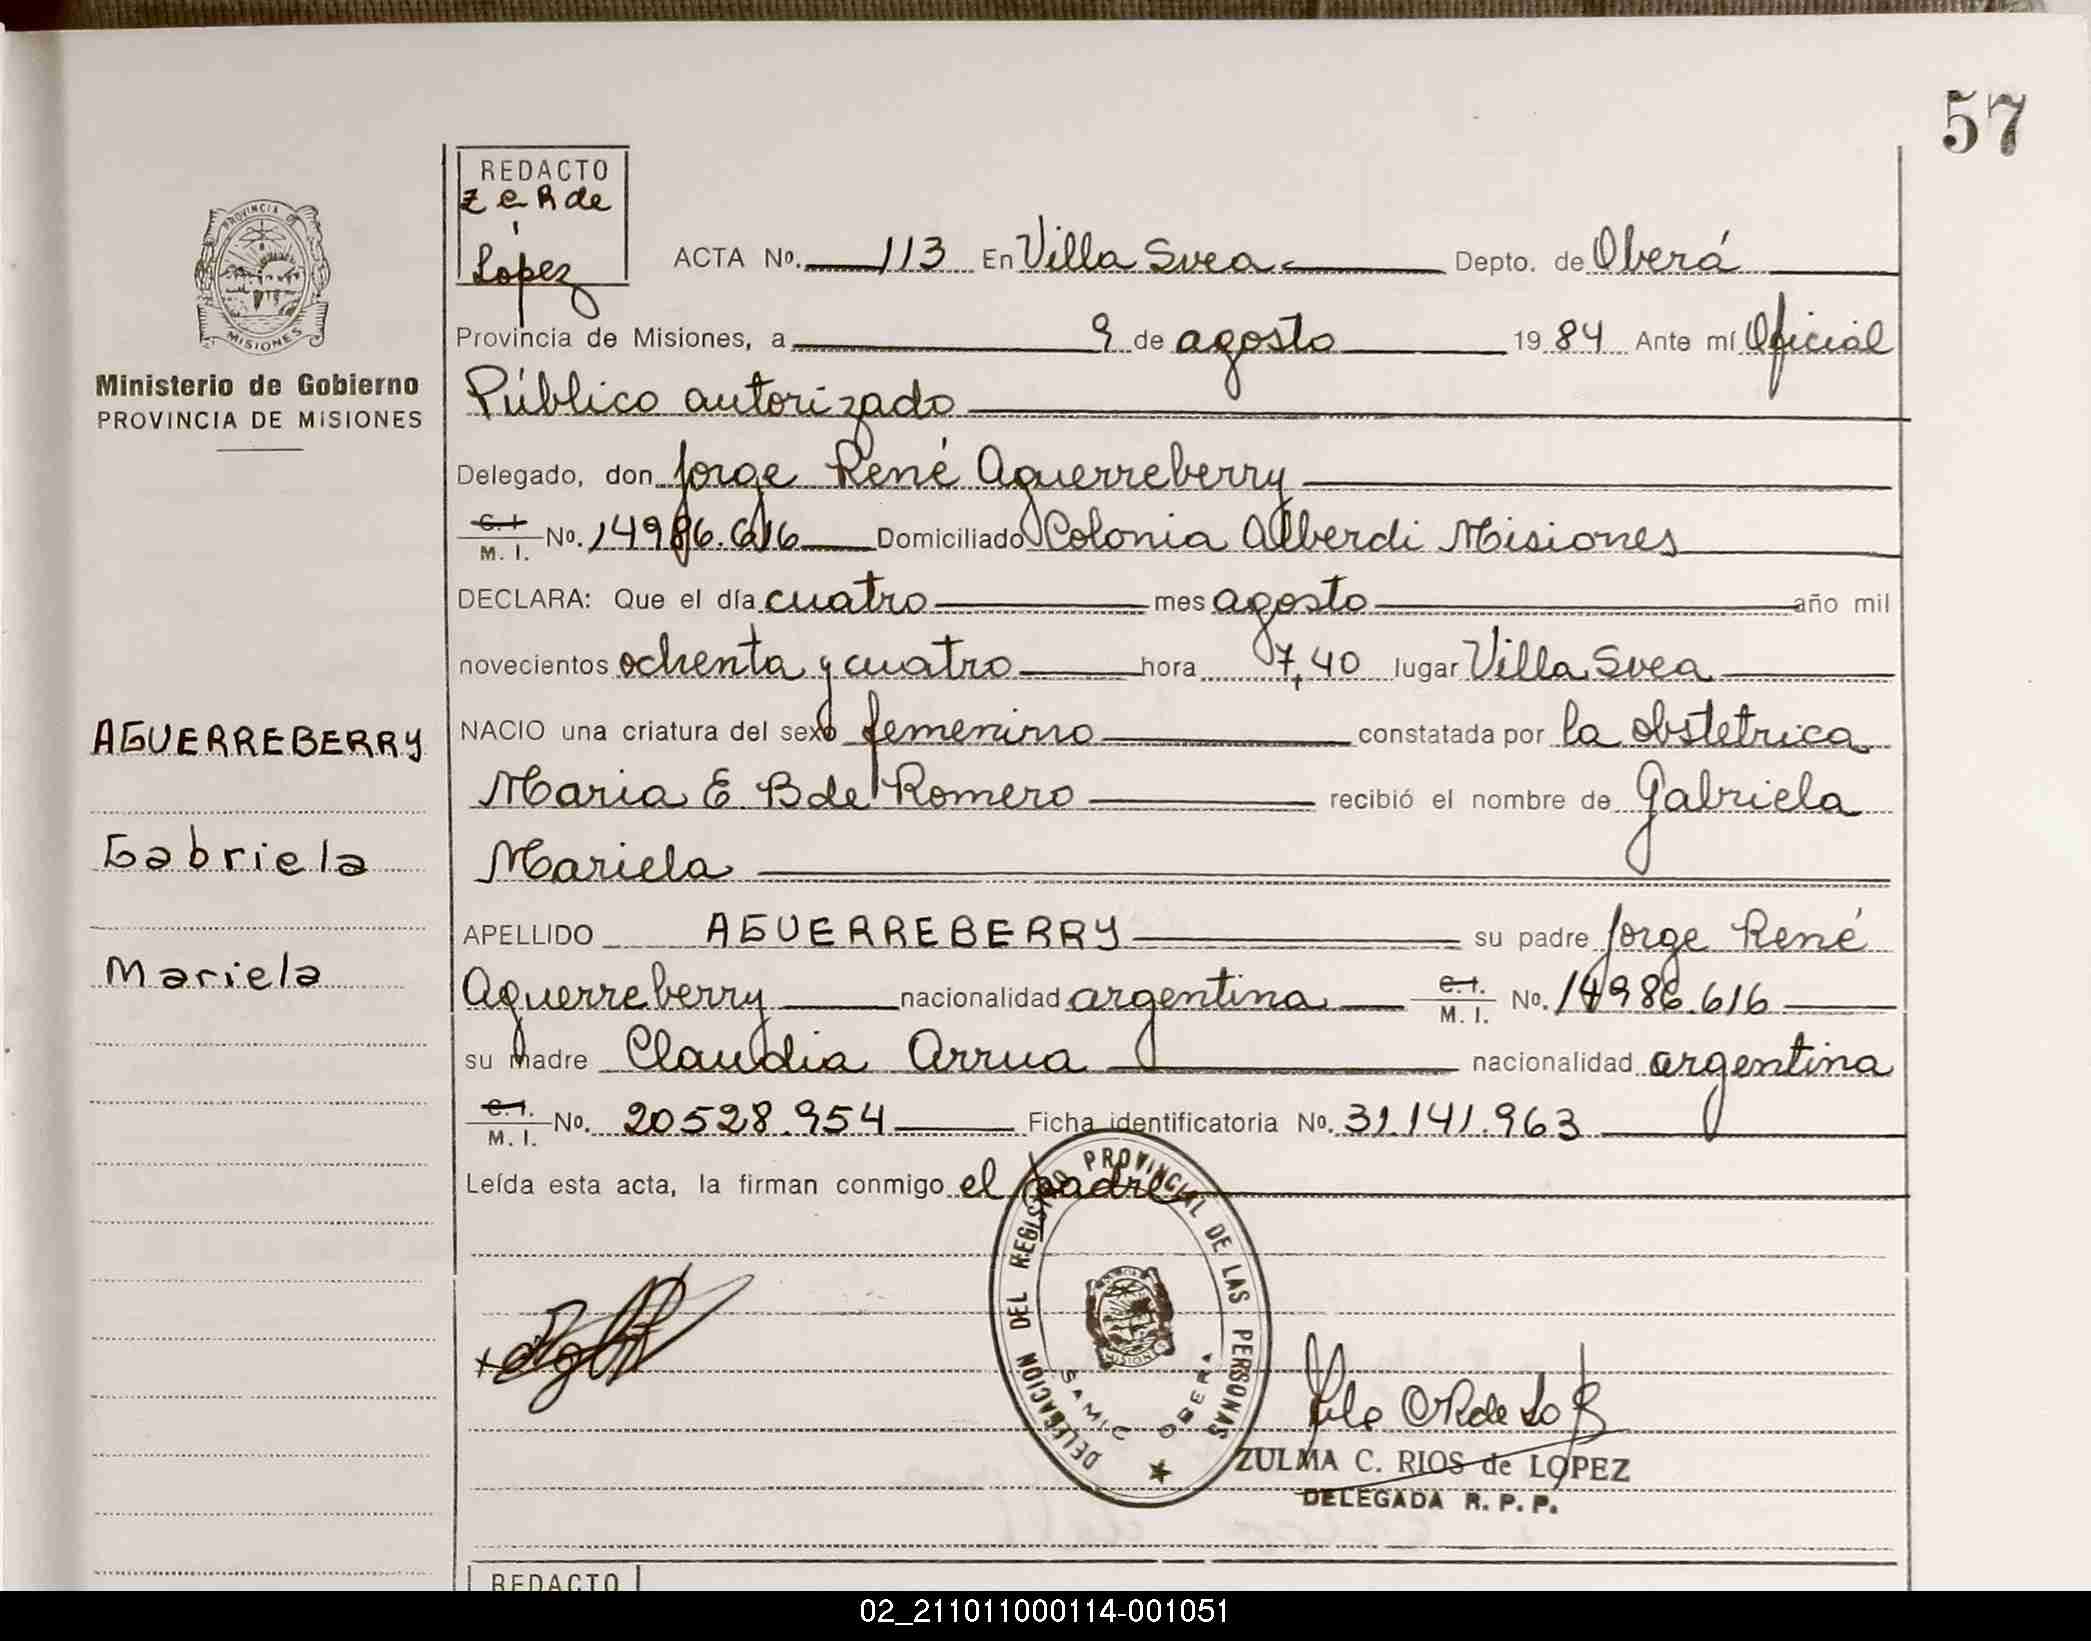 57
REDACTO
Z C R de
Lopez
PROVINCIA DE
MISIONES
Ministerio de Gobierno
PROVINCIA DE MISIONES
ACTA No. 113 En Villa Svea Depto. de Oberá
Provincia de Misiones, a 9 de agosto 1984 Ante mí Oficial
Público autorizado
Delegado, don Jorge René Aguerreberry
C. I. M. I. No. 14986.616 Domiciliado Colonia Alberdi Misiones
DECLARA: Que el día cuatro mes agosto año mil
novecientos ochenta y cuatro hora 7,40 lugar Villa Svea
NACIO una criatura del sexo femenino constatada por la obstetrica
Maria E B de Romero recibió el nombre de Gabriela
Mariela
AGUERREBERRY
Gabriela
Mariela
APELLIDO AGUERREBERRY su padre Jorge René
Aguerreberry nacionalidad argentina C. I. M. I. No. 14986.616
su madre Claudia Arrua nacionalidad argentina
C. I. M. I. No. 20528.954 Ficha identificatoria No. 31.141.963
Leída esta acta, la firman conmigo el padre
DELEGACION DEL REGISTRO PROVINCIAL DE LAS PERSONAS
MISIONES
SAMIC OBERA
ZULMA C. RIOS de LOPEZ
DELEGADA R. P. P.
REDACTO
02_211011000114-001051